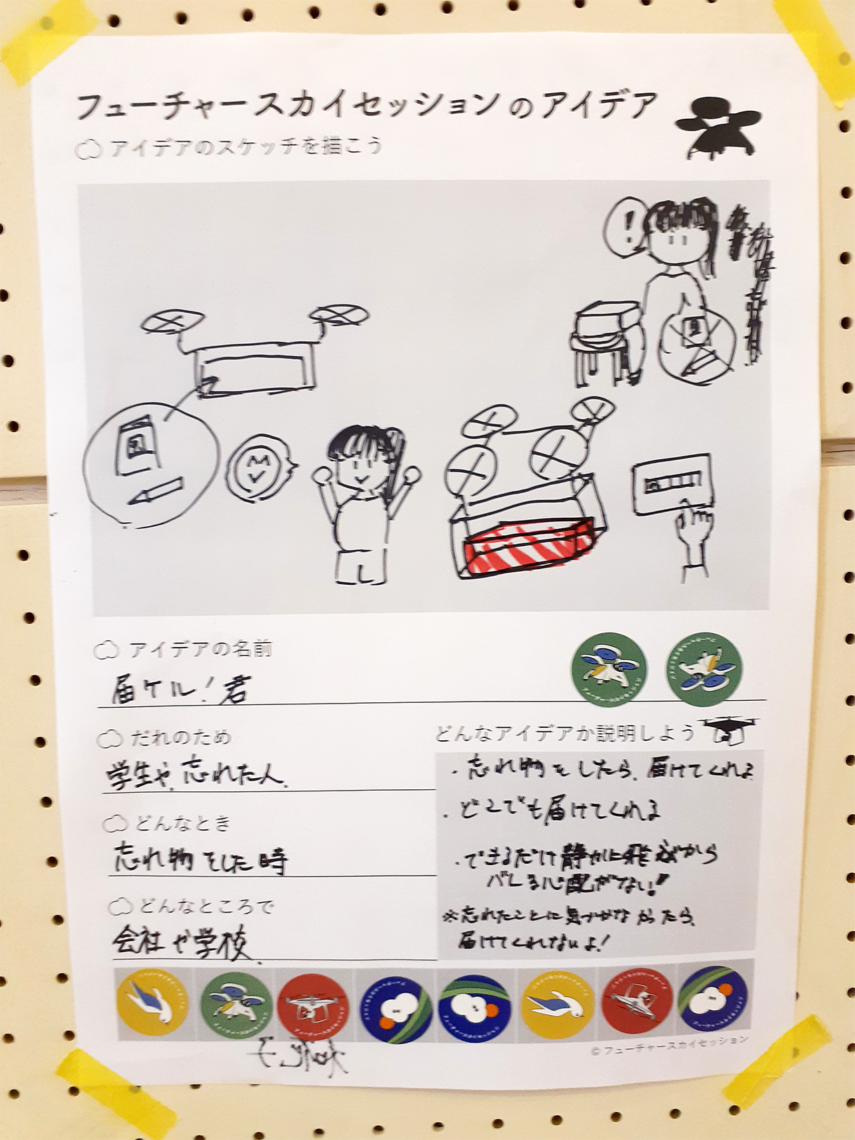 フューチャースカイセッションのアイデア
アイデアのスケッチを描こう
!
アイデアの名前
届ケル!君
だれのため
学生や、忘れた人
どんなとき
忘れ物をした時
どんなところで
会社や学校
どんなアイデアか説明しよう
・忘れ物をしたら、届けてくれる
・どこでも届けてくれる
・できるだけ静かに飛ぶから
バレる心配がない!!
※忘れたことに気づかなかったら、
届けてくれないよ!
© フューチャースカイセッション